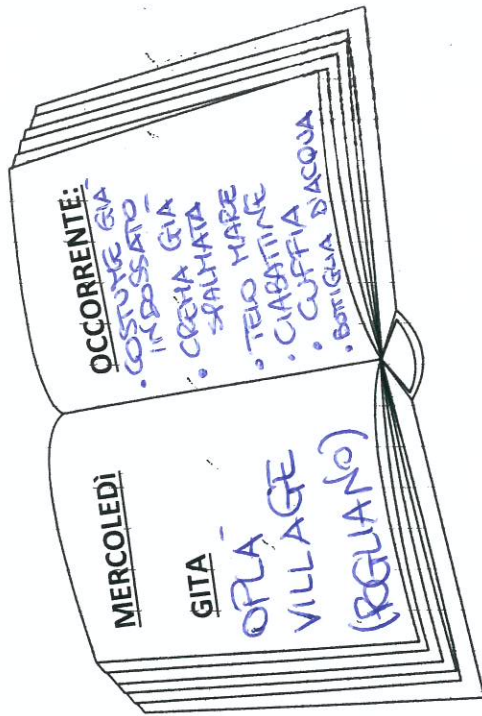 MERCOLEDÌ
GITA
OPLÀ
VILLAGE
(ROGLIANO)
OCCORRENTE:
• COSTUME GIÀ
INDOSSATO
• CREMA GIÀ
SPALMATA
• TELO MARE
• CIABATTINE
• CUFFIA
• BOTTIGLIA D'ACQUA